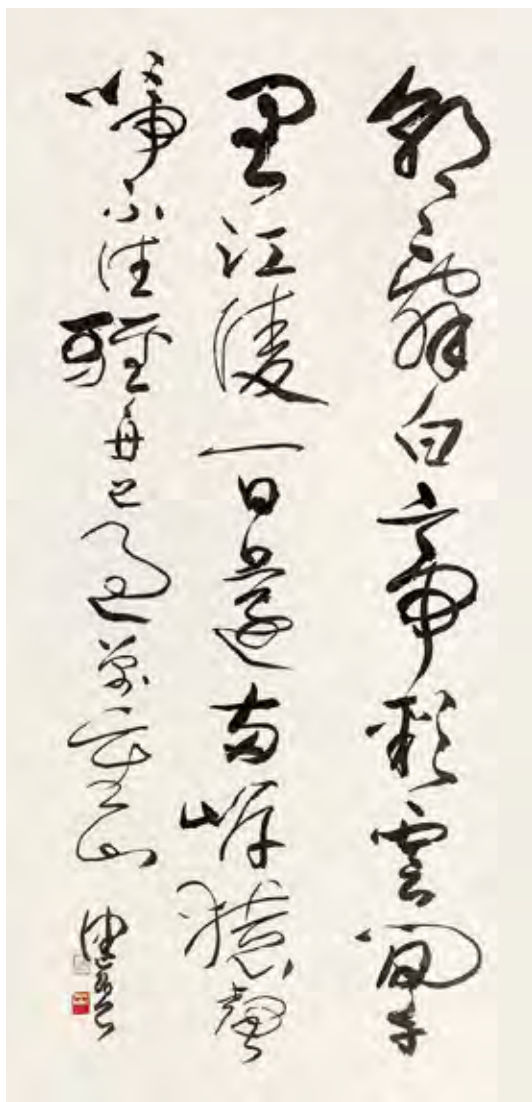 朝辞白帝彩雲間千
里江陵一日還兩岸猿聲
啼不住輕舟已過萬重山